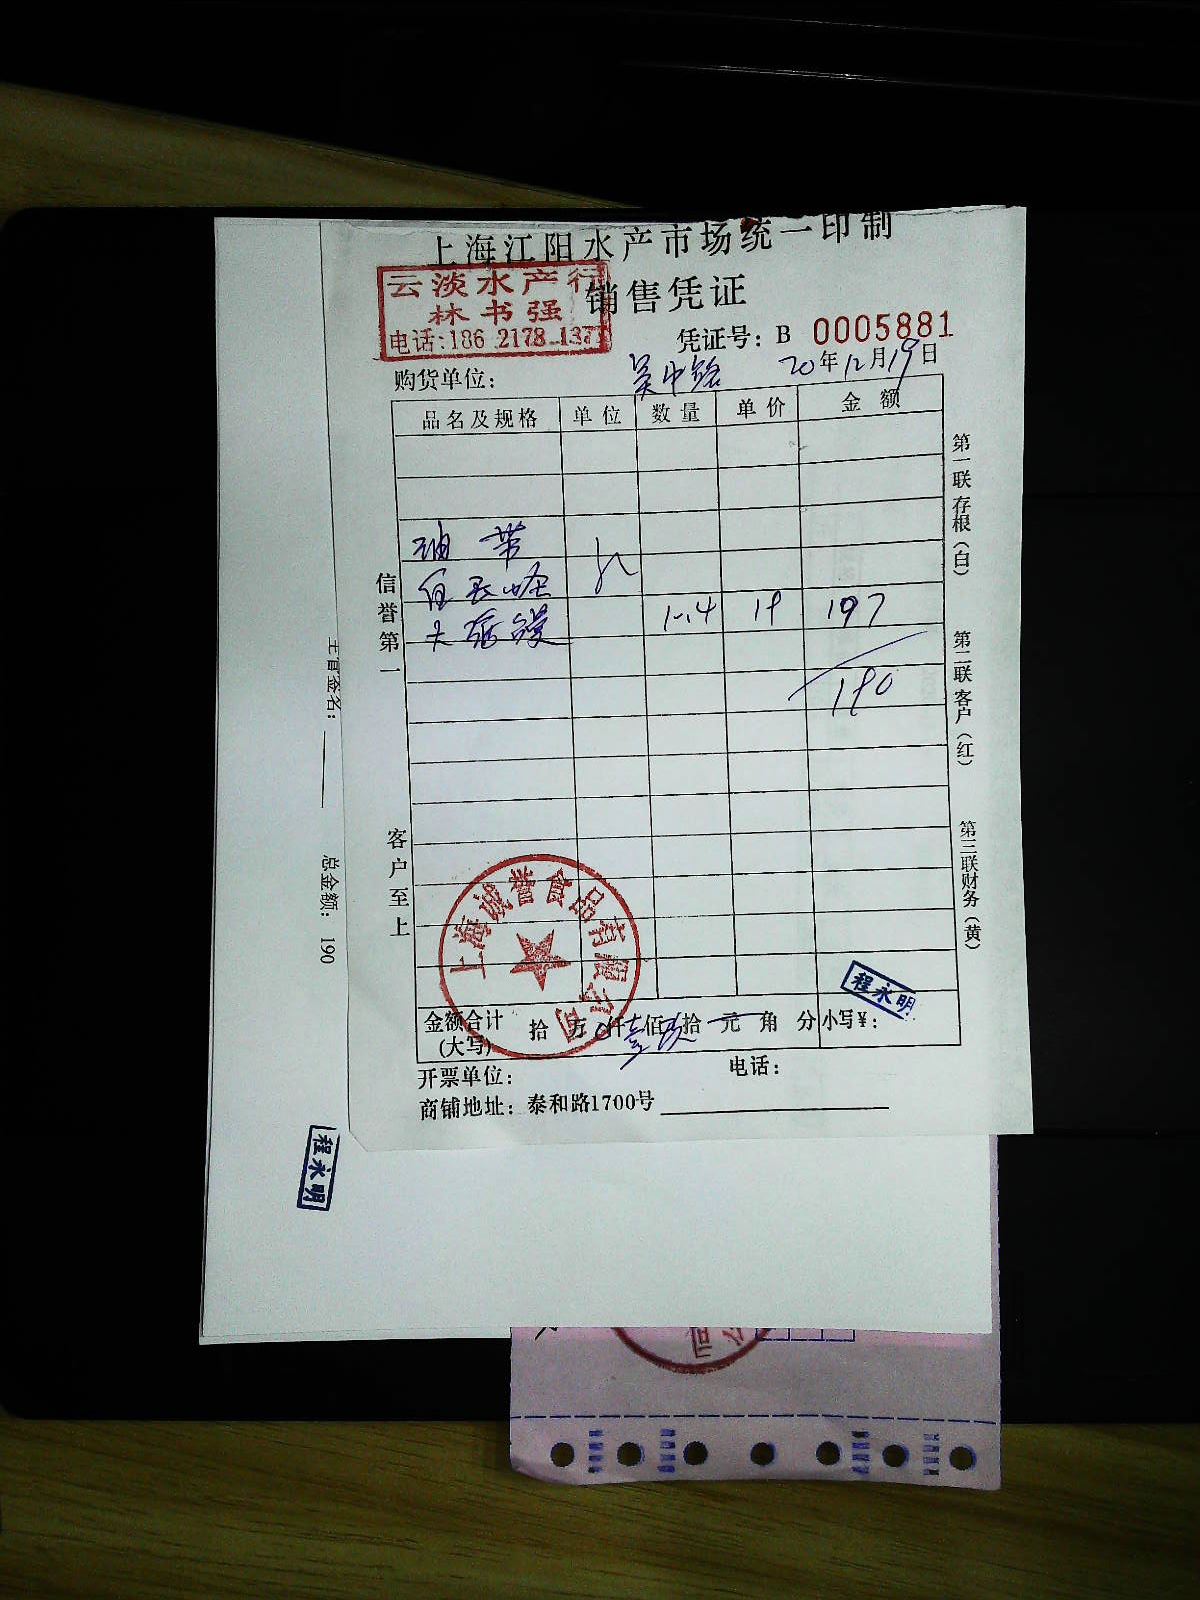 上海江阳水产市场统一印制
云淡水产行
林书强
电话:186 2178 1377
销售凭证
凭证号: B 0005881
购货单位: 吴中路 20年12月19日
品名及规格 单位 数量 单价 金额
油带
197
190
信誉第一
客户至上
第一联存根(白)
第二联客户(红)
第三联财务(黄)
上海诚誉食品有限公司
程永明
金额合计(大写) 拾万仟壹佰玖拾元角分 小写¥:
开票单位: 电话:
商铺地址: 泰和路1700号
主管签名:
总金额: 190
程永明